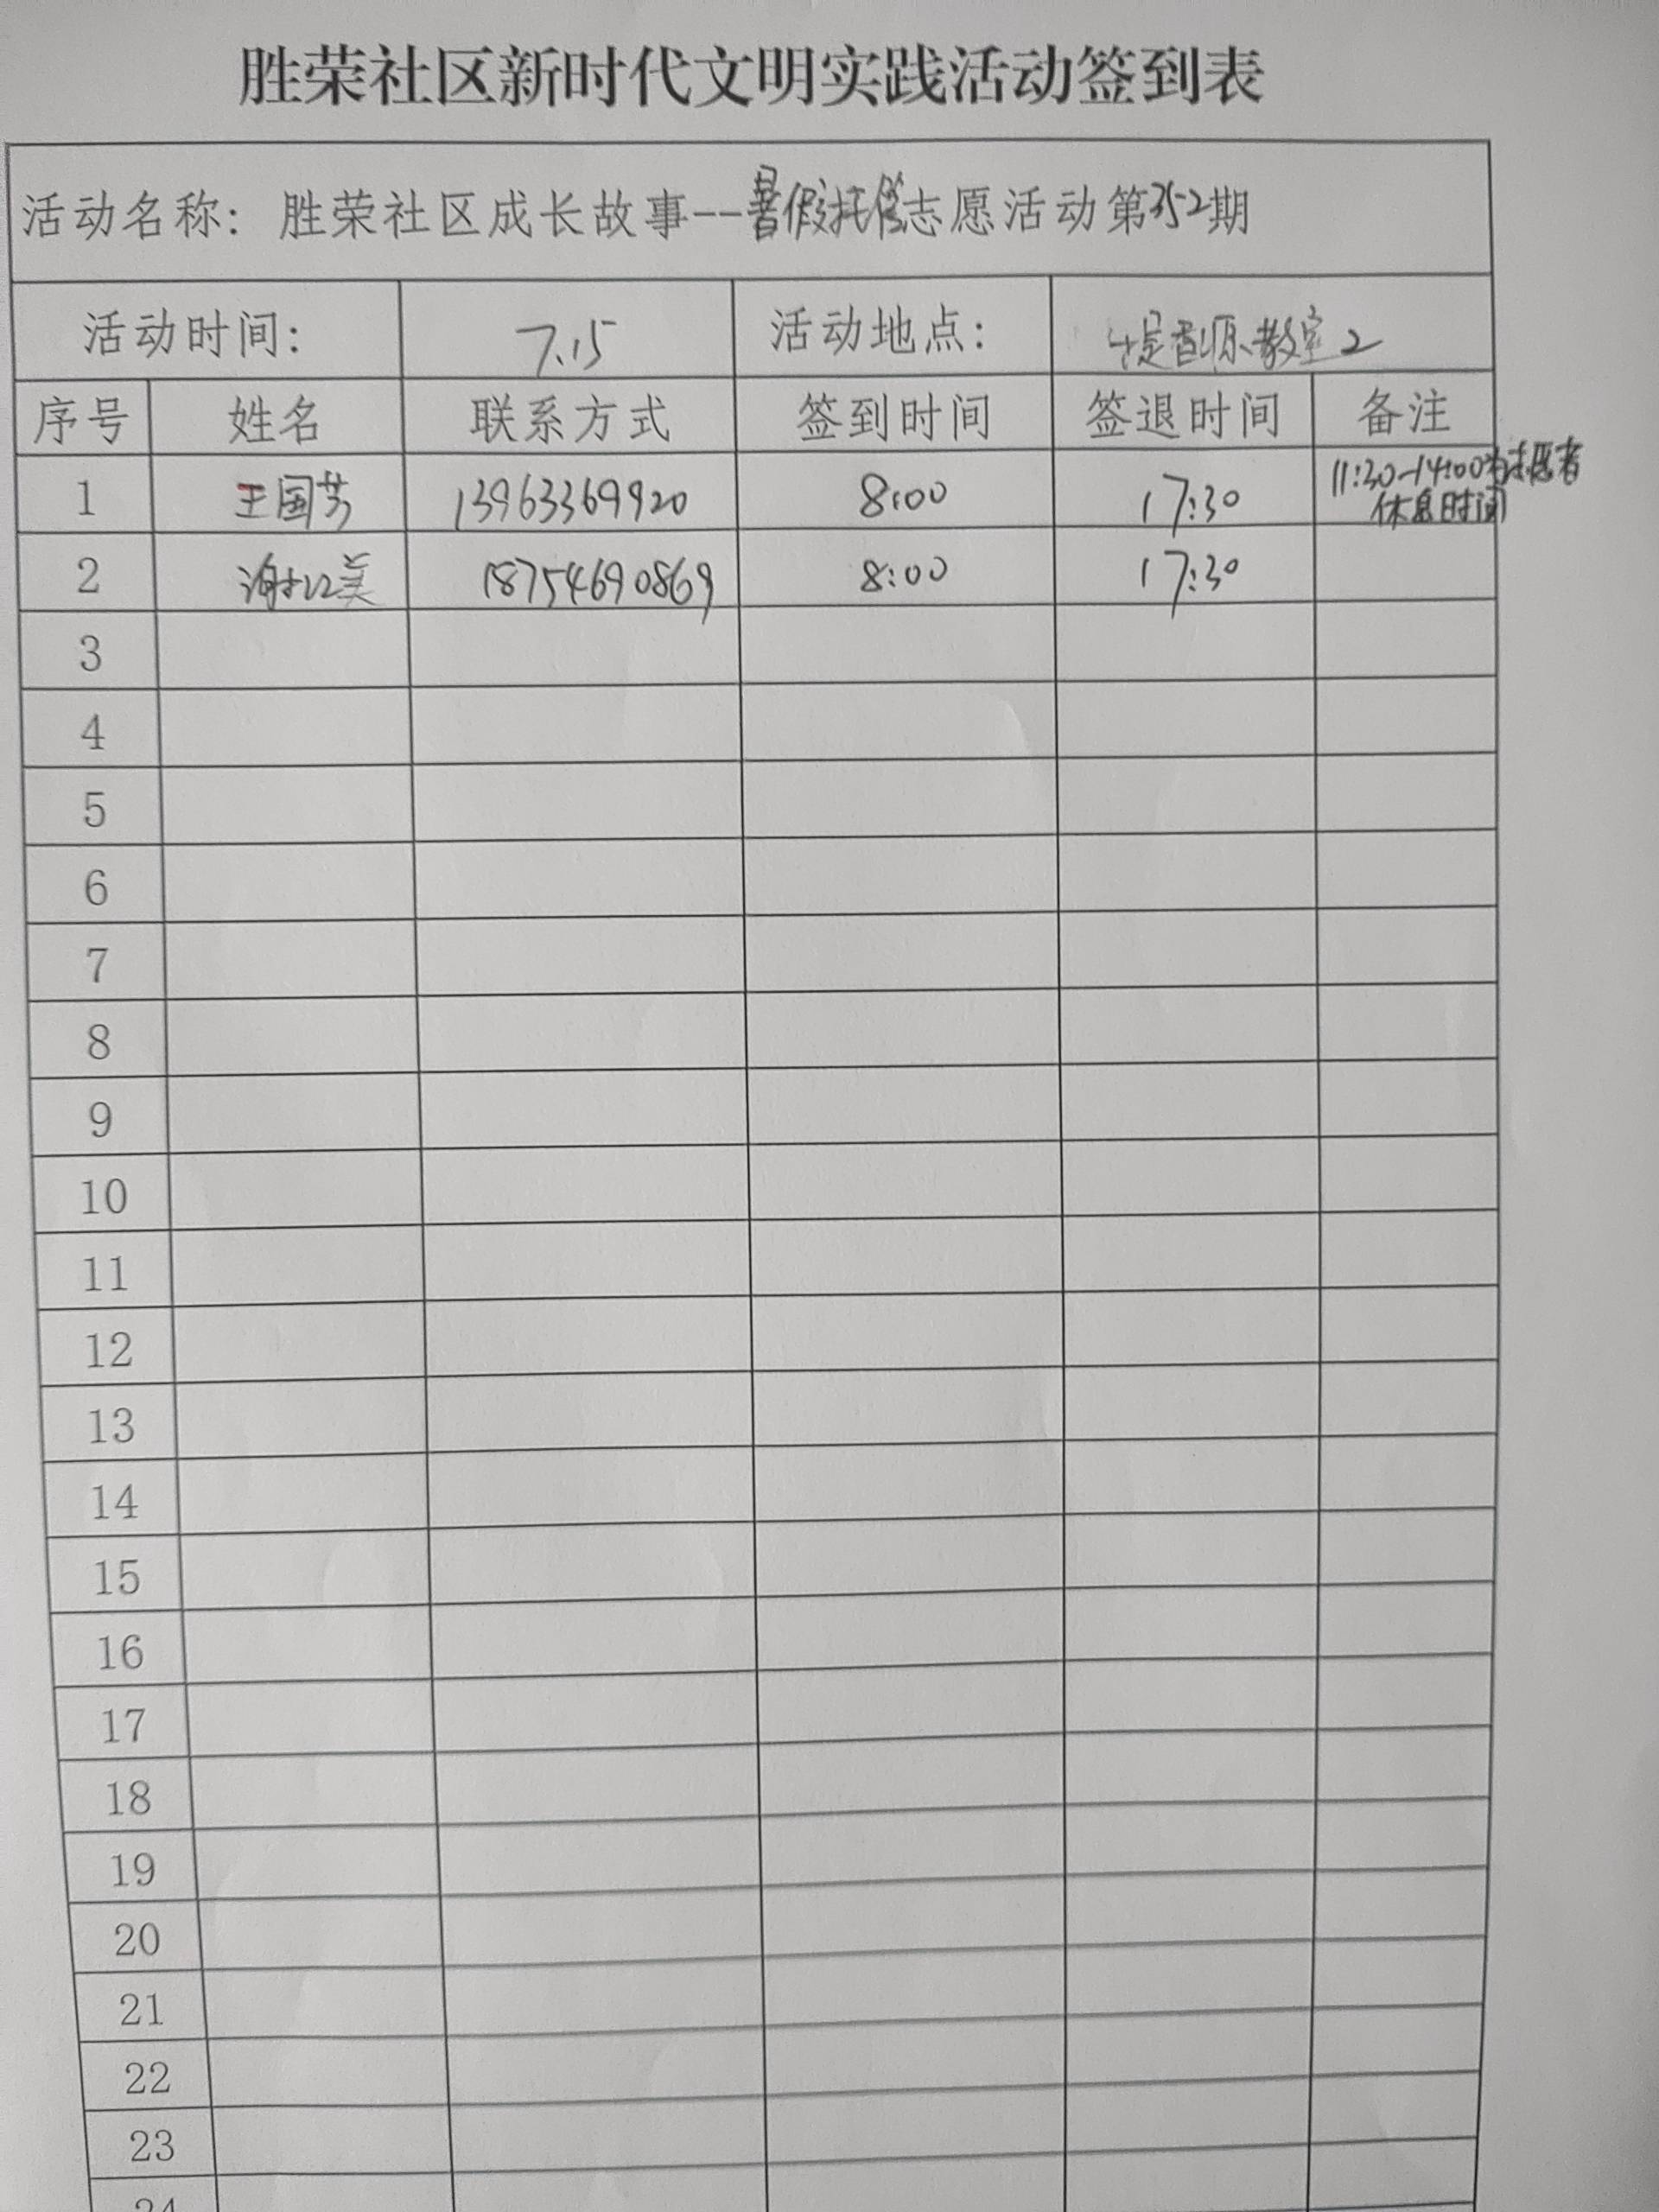 胜荣社区新时代文明实践活动签到表
活动名称：胜荣社区成长故事--暑假托管志愿活动第352期
活动时间： 7.15 活动地点： 教室2
序号 姓名 联系方式 签到时间 签退时间 备注
1 王国芳 13963369920 8:00 17:30 11:30-14:00为志愿者
休息时间
2 谢 美 18754690869 8:00 17:30
3
4
5
6
7
8
9
10
11
12
13
14
15
16
17
18
19
20
21
22
23
24